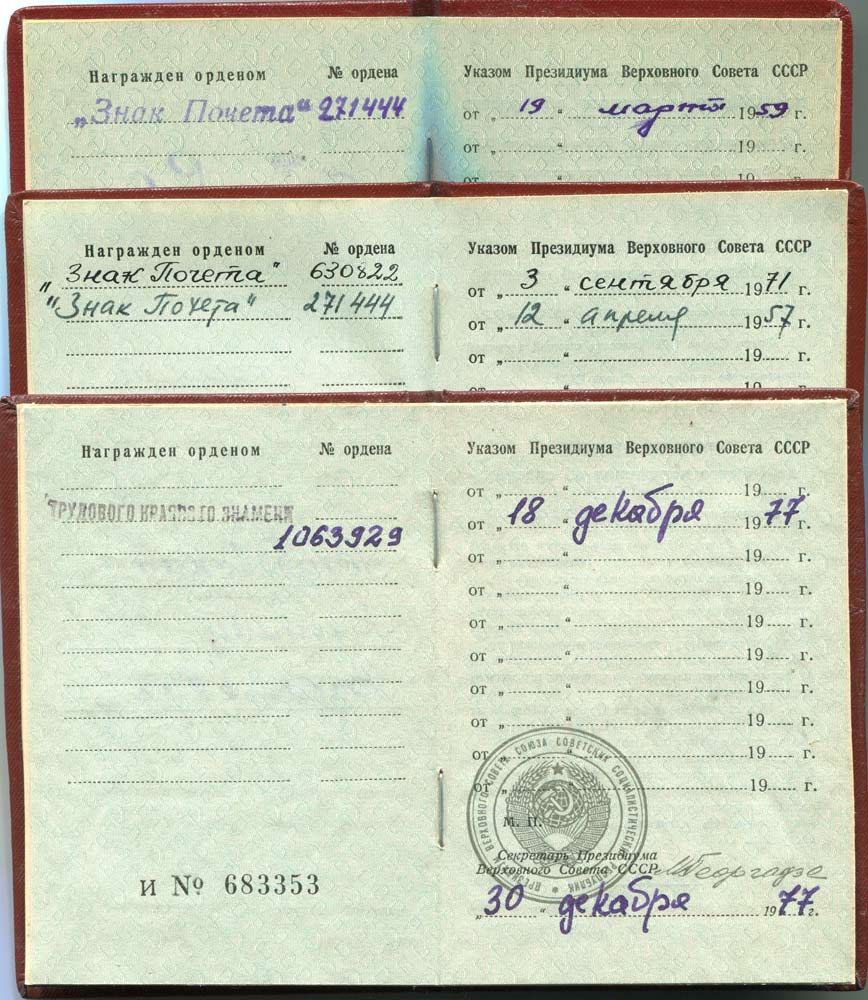 Награжден орденом № ордена Указом Президиума Верховного Совета СССР
„Знак Почета“ 271444 от „ 19 “ марта 1959 г.
от „ “ 19 г.
от „ “ 19 г.
Награжден орденом № ордена Указом Президиума Верховного Совета СССР
„Знак Почета" 630822 от „ 3 “ сентября 1971 г.
"Знак Почета" 271444 от „ 12 “ апреля 1957 г.
от „ “ 19 г.
от „ “ 19 г.
Награжден орденом № ордена Указом Президиума Верховного Совета СССР
от „ “ 19 г.
ТРУДОВОГО КРАСНОГО ЗНАМЕНИ от „ 18 “ декабря 1977 г.
1063929 от „ “ 19 г.
от „ “ 19 г.
от „ “ 19 г.
от „ “ 19 г.
от „ “ 19 г.
от „ “ 19 г.
от „ “ 19 г.
от „ “ 19 г.
ПРЕЗИДИУМ ВЕРХОВНОГО СОВЕТА СОЮЗА СОВЕТСКИХ СОЦИАЛИСТИЧЕСКИХ РЕСПУБЛИК
М. П.
Секретарь Президиума
Верховного Совета СССР МГеоргадзе
И № 683353
„30 “ декабря 1977 г.